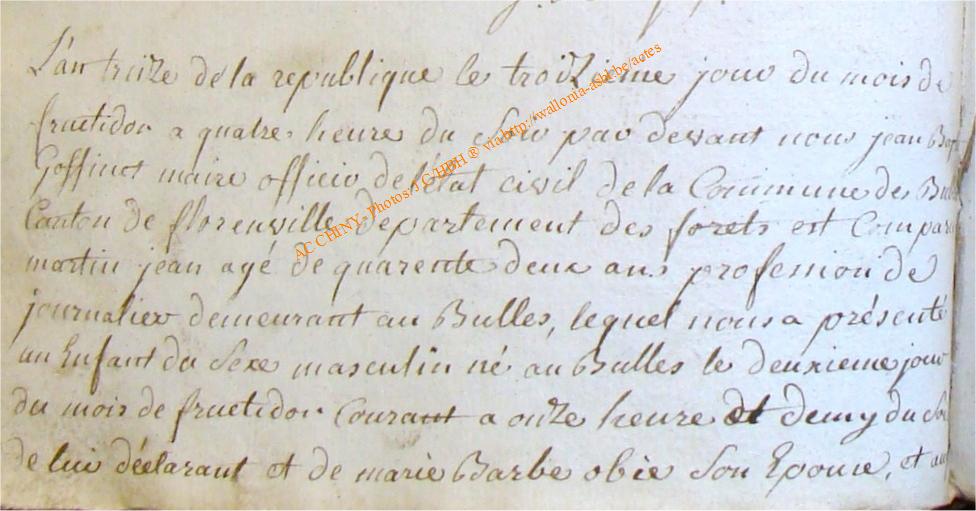 L'an treize de la republique le troizieme jour du mois de
fructidor a quatre heure du Soir par devant nous jean Bap
Goffinot maire officir de l'etat civil de la Commune des Bul
Canton de florenville departement des forets est Compar
martin jean agé de quarente deux ans profession de
journalier demeurant au Bulles, lequel nous a présenté
un Enfant du Sexe masculin né au Bulles le deuxieme jour
du mois de fructidor Courant a onze heure et demy du So
de lui déclarant et de marie Barbe obie Son Epouse, et au
AC CHINY - Photos/J.C/HPH ® via http://wallonia-asbl.be/actes